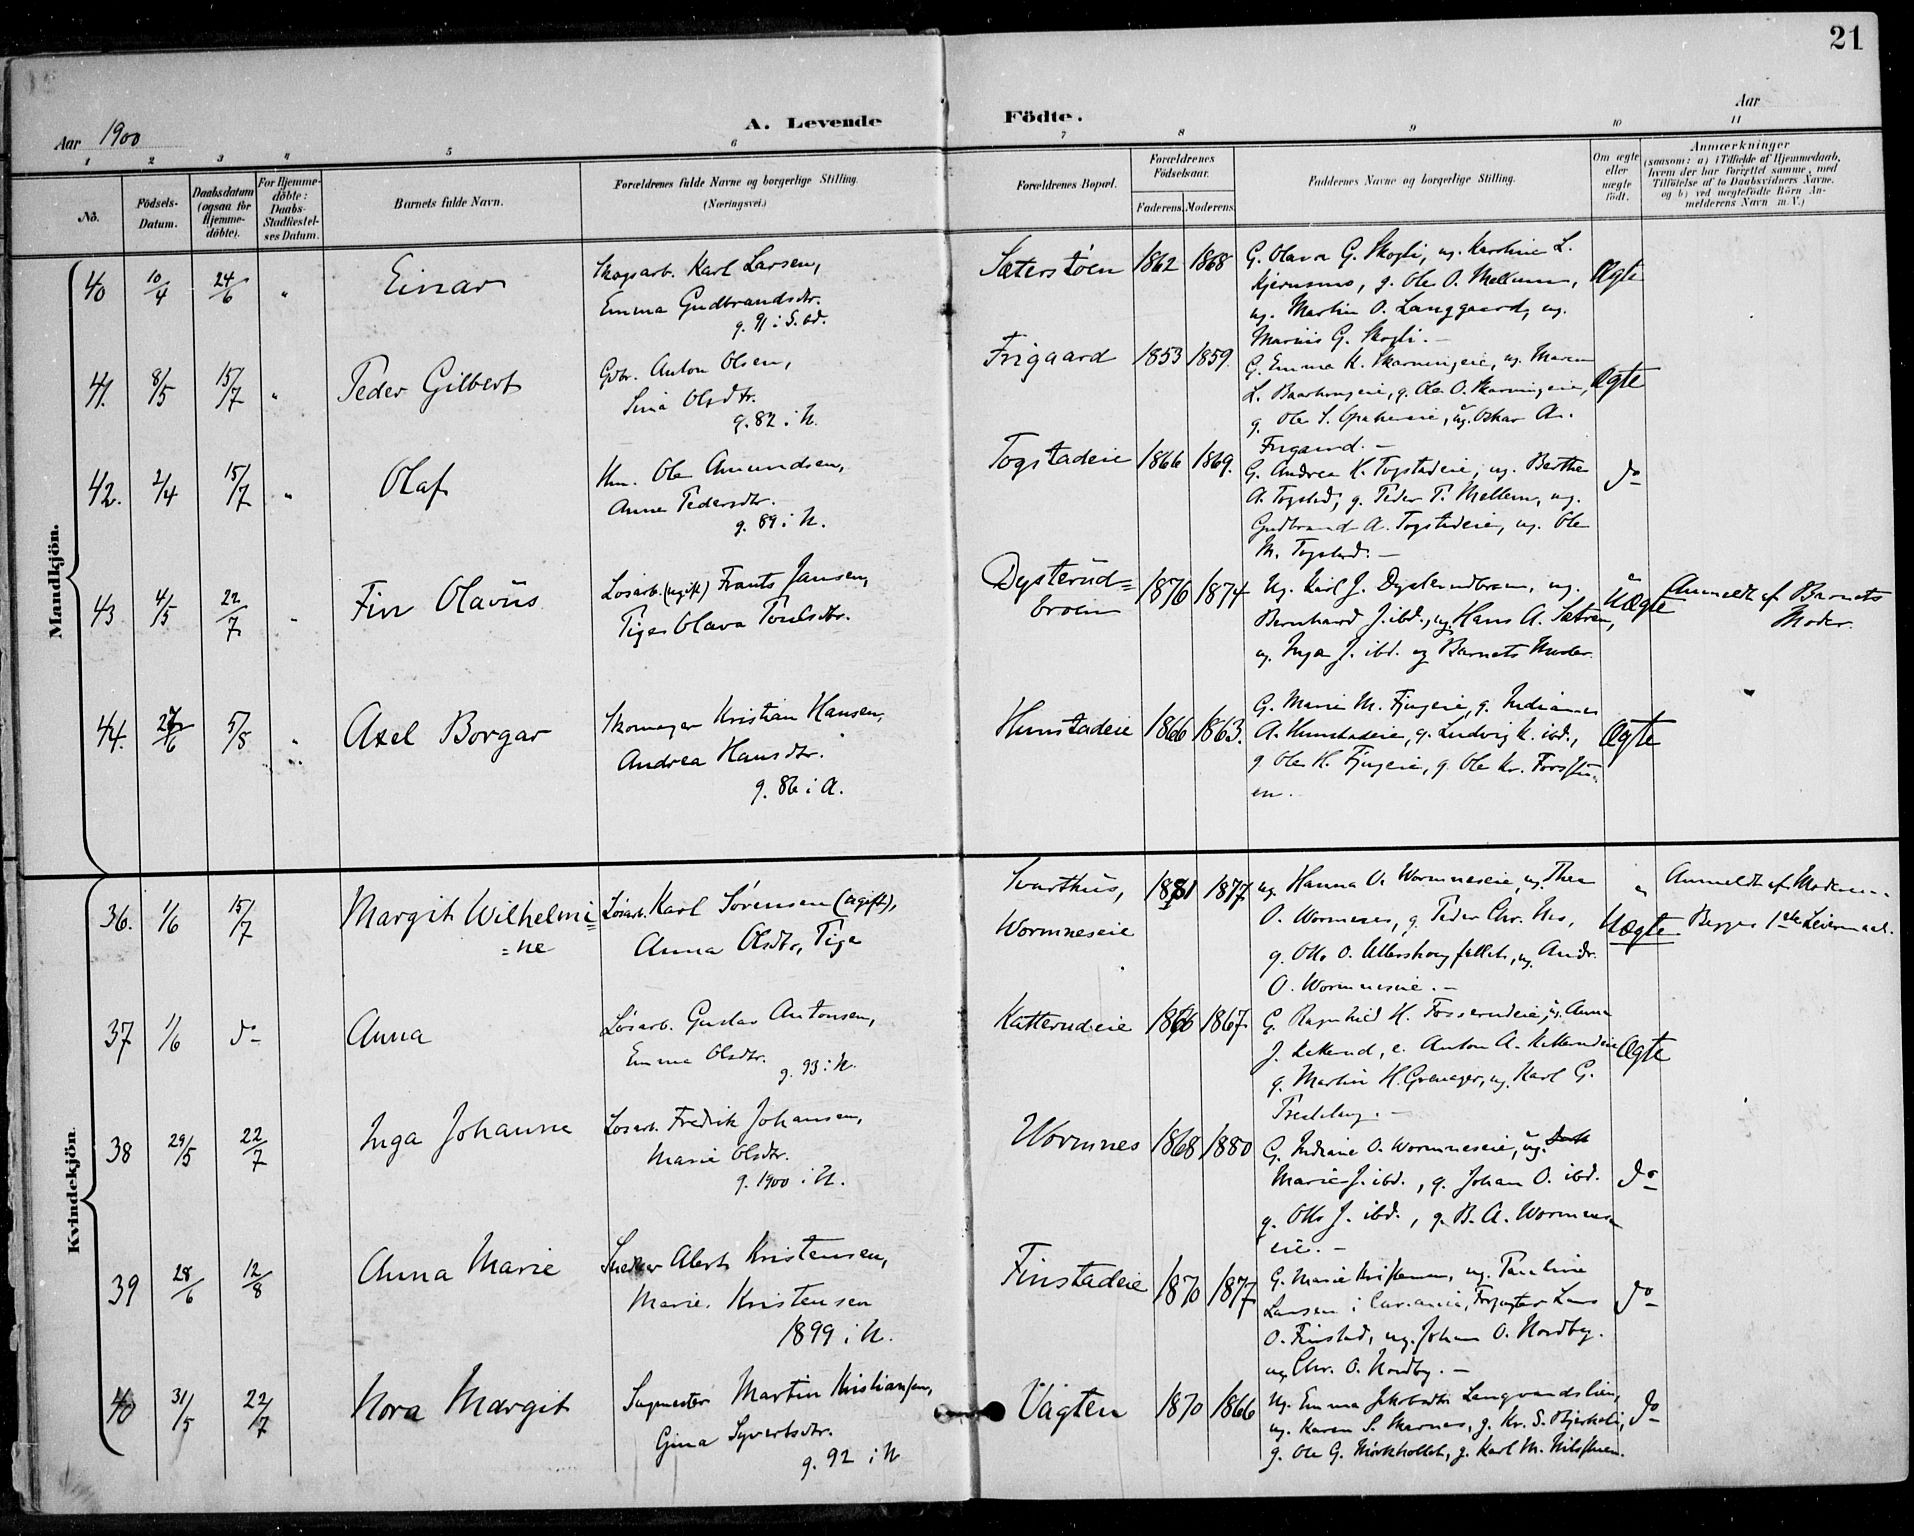 21
Aar 1900
A. Levende Födte.
Aar
1 2 3 4 5 6 7 8 9 10 11
No.
Födsels-Datum.
Daabsdatum (ogsaa for Hjemme-döbte).
For Hjemme-döbte: Daabs-Stadfæstel-ses Datum.
Barnets fulde Navn.
Forældrenes fulde Navne og borgerlige Stilling. (Næringsvei.)
Forældrenes Bopæl.
Forældrenes Födselsaar.
Faderens. Moderens.
Faddernes Navne og borgerlige Stilling.
Om ægte eller uægte födt.
Anmærkninger
(saasom: a) i Tilfælde af Hjemmedaab,
hvem der har forrettet samme, med
Tilföielse af to Daabsvidners Navne,
og b) ved uægtefödte Börn An-
melderens Navn m. V.)
Mandkjön.
40 10/4 24/6 " Einar
Skogsarb. Karl Larsen,
Emma Gudbrandsdtr.
g. 91 i S. Od.
Sæterstøen 1862 1868
G. Olava G. Skogli, ug. Karoline L.
Kjernsmo, g. Ole O. Mellum,
ug. Martin O. Langgaard, ug.
Marius G. Skogli. —
Ægte
41. 8/5 15/7 " Peder Gilbert
Gbr. Anton Olsen,
Sina Olsdtr.
g. 82 i N.
Friggaard 1853 1859.
G. Emma K. Skarningeie, ug. Maren
L. g. Ole O. Skarningeie,
g. Ole S. ug. Oskar An.
Frigaard. —
Ægte
42. 2/4 15/7 " Olaf
Hm. Ole Amundsen,
Anne Pedersdtr.
g. 89 i N.
Togstadeie 1866 1869.
G. Andrea K. Togstadeie, ug. Berthe
A. Togstad, g. Peder P. Mellem, ug.
Gudbrand A. Togstadeie, ug. Ole
M. Togstad. —
do
43 4/5 22/7 " Finn Olavus
Løsarb. (ugift) Frants Jansen,
Pige Olava Poulsdtr.
Dysterud=
broen 1876 1874
Ug. Karl J. Dysterudbroen, ug.
Bernhard J. ibd., ug. Hans A. Sætren,
ug. Inga J. ibd. og Barnets Moder.
Uægte
Anmeldt af Barnets
Moder.
44. 27/6 5/8 " Axel Borgar
Skomager Kristian Hansen,
Andrea Hansdtr.
g. 86 i A.
Hunstadeie 1866 1863.
G. Marie M. Fjugeie, g. Indianna
A. Hunstadeie, g. Ludvig K. ibd.,
g. Ole H. Fjugeie, g. Ole Kr.
en.
Ægte
Kvindekjön.
36. 1/6 15/7 Margit Wilhelmi=
=ne
Løsarb. Karl Sørensen (ugift),
Anna Olsdtr., Pige
Svarthus,
Wormneseie 1881 1877
ug. Hanna O. Wormneseie, ug. Thea
O. Wormnes, g. Peder Chr. Nes,
g. Otto O. ug. Andr.
O. Wormneseie. —
"
Uægte
Anmeldt af Moderen.
Begges 1ste Leiermaal.
37 1/6 do Anna
Løsarb. Gustav Antonsen,
Emma Olsdtr.
g. 93 i N.
Katterudeie 1866 1867
G. Ragnhild H. Fosserudeie, ug. Anna
J. Katterud, e. Anton A. Katterudeie
g. Martin H. Grenager, ug. Karl G.
Ægte
38 29/5 22/7 Inga Johanne
Løsarb. Fredrik Johansen,
Marie Olsdtr.
g. 1900 i N.
Wormnes 1868 1880
G. Indiane O. Wormneseie, ug.
Marie J. ibd., g. Johan O. ibd.
g. Otto J. ibd., g. B. A. Wormnes
eie. —
do
39 28/6 12/8 Anna Marie
Snedker Albert Kristensen,
Marie Kristensen
1899 i N.
Finstadeie 1870 1877
G. Marie Kristensen, ug. Pauline
Larsen i Kristiania, Forpagter Lars
O. Finstad, ug. Johan O. Nordby.
ug. Chr. O. Nordby. —
do
40 31/5 22/7 Nora Margit
Sagmester Martin Kristiansen,
Gina Syvertsdtr.
g. 92 i N
Vagten 1870 1866
Ug. Emma Jakobsdtr. Langvandslien,
ug. Karen S. Skarnes, g. Kr. S. Bjerkeli,
g. Ole G. Mörkholtet, g. Karl M. Nilsstuen.
do